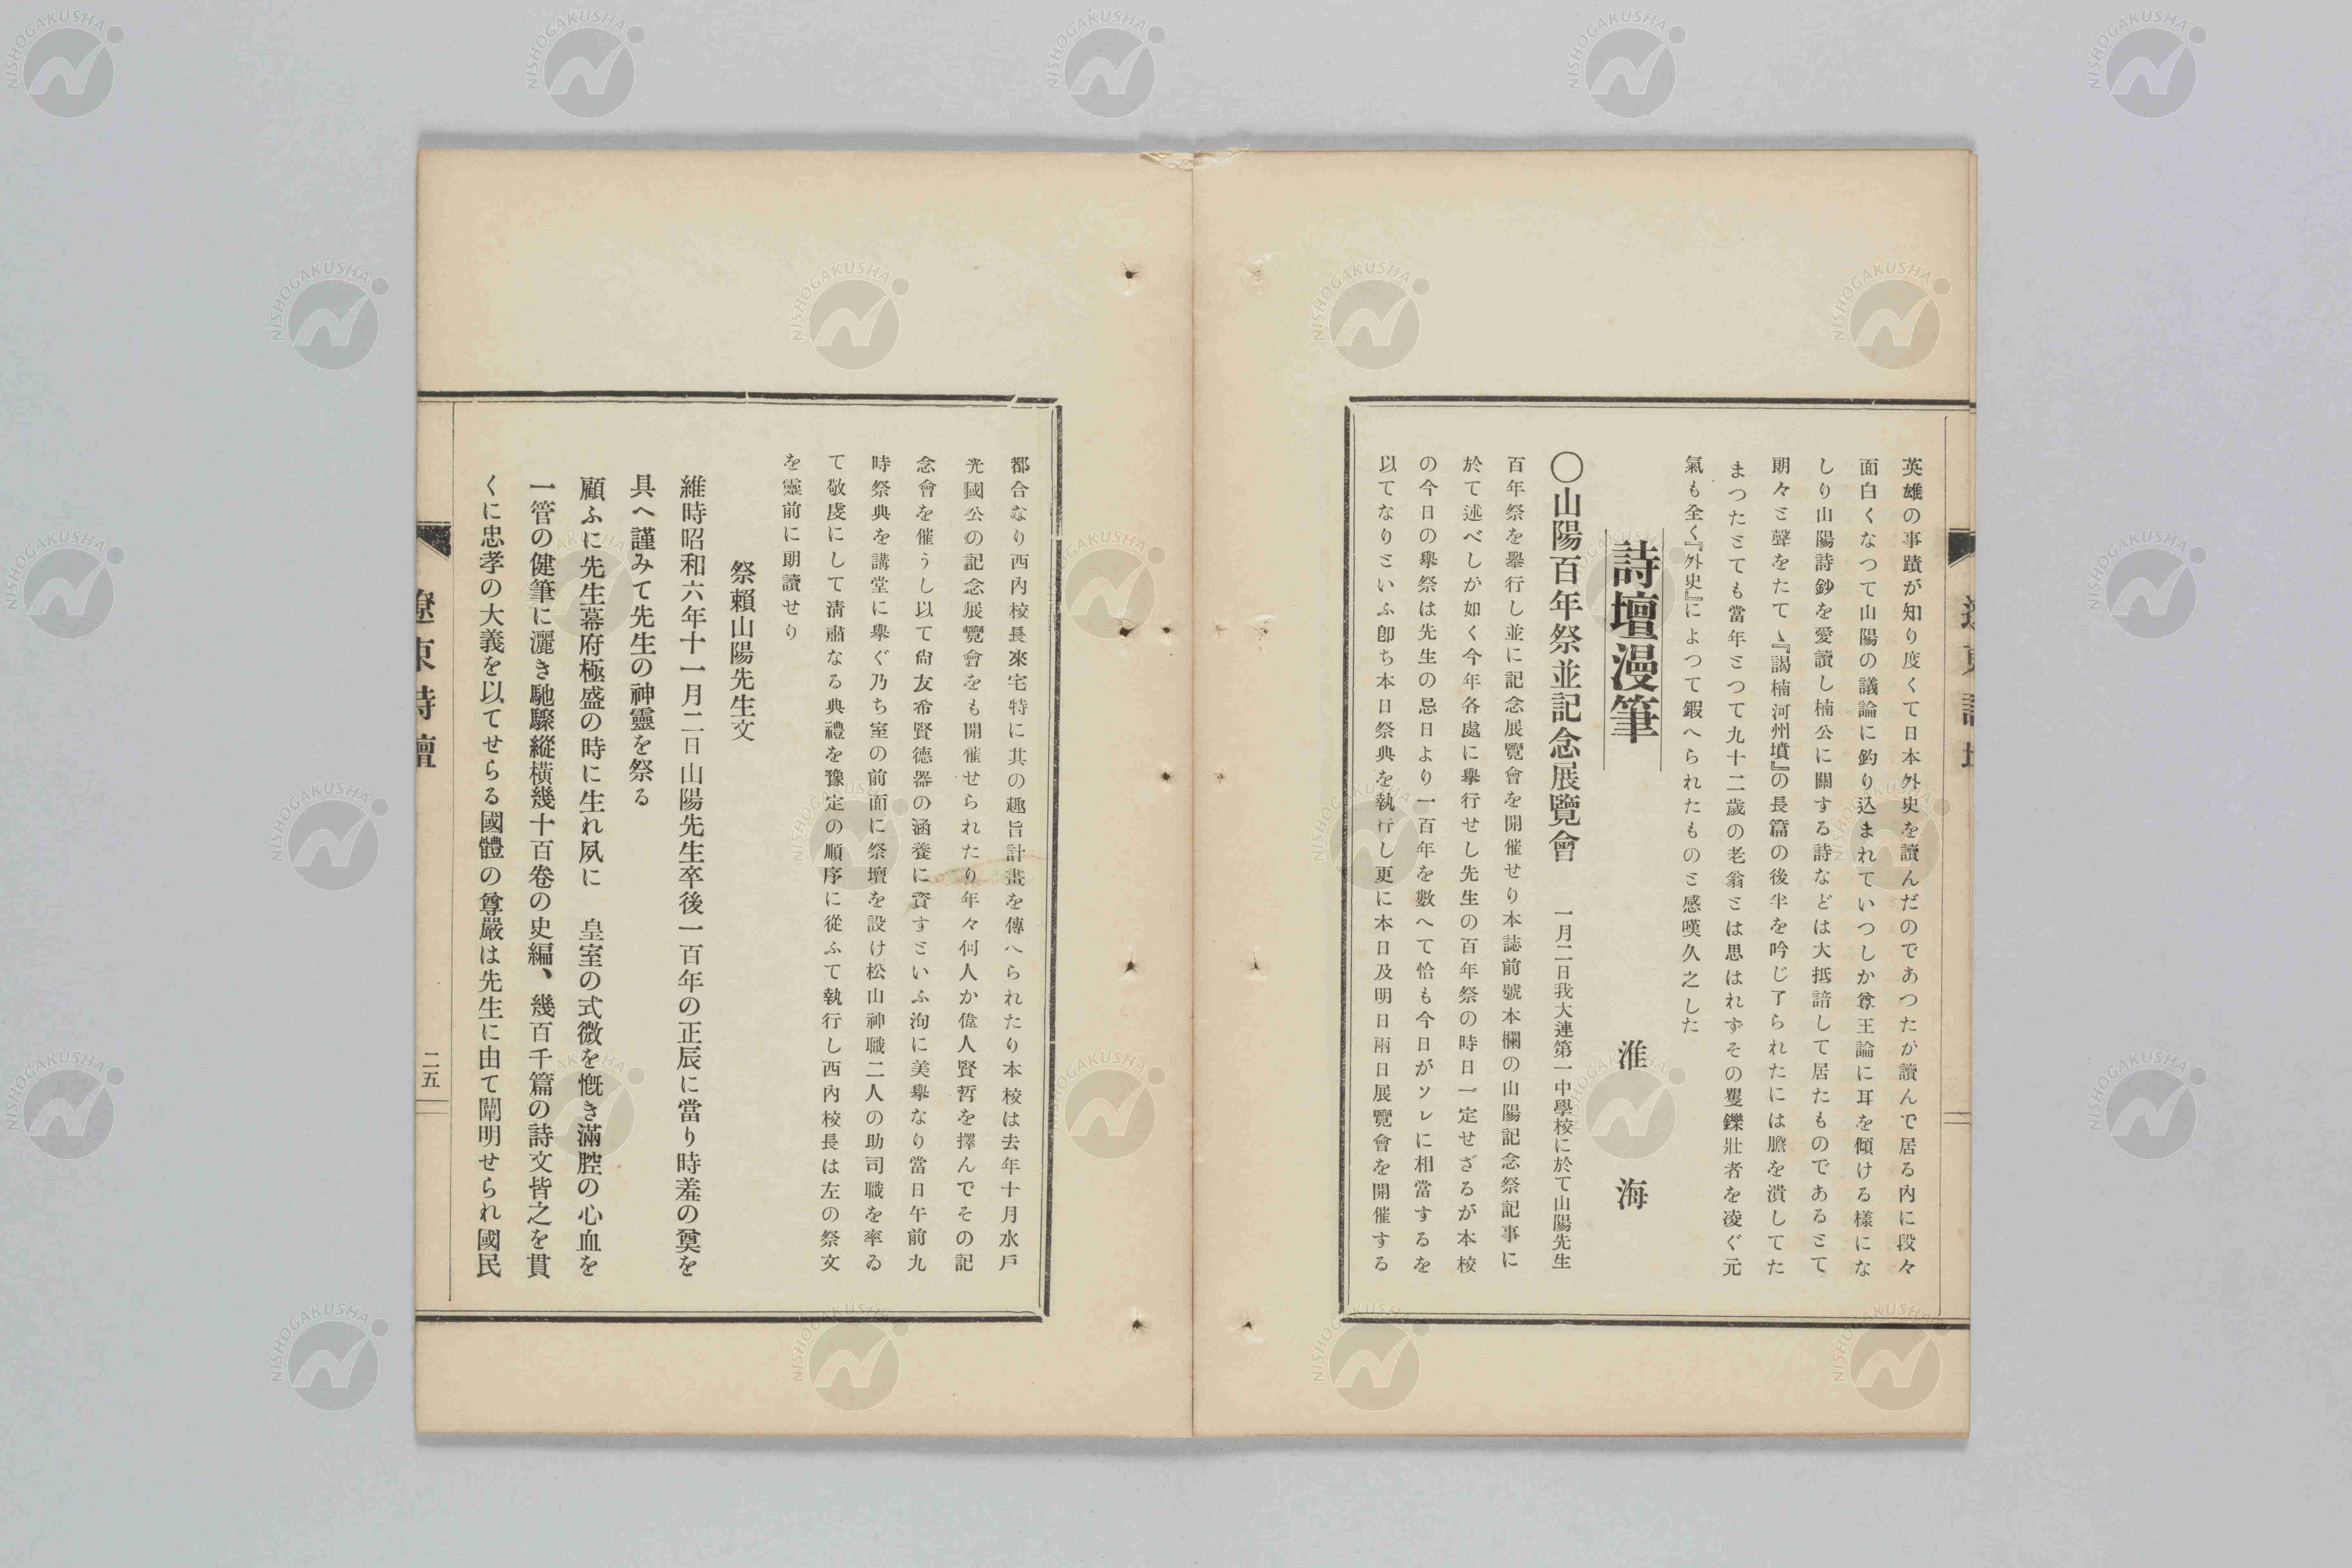 英雄の事蹟が知り度くて日本外史を讀んだのであつたが讀んで居る內に段々
面白くなつて山陽の議論に釣り込まれていつしか尊王論に耳を傾ける樣にな
しり山陽詩鈔を愛讀し楠公に關する詩などは大抵諳して居たものであるとて
朗々と聲をたて、『謁楠河州墳』の長篇の後半を吟じ了られたには膽を潰してた
まつたとても當年とつて九十二歲の老翁とは思はれずその矍鑠壯者を凌ぐ元
氣も全く『外史』によつて鍜へられたものと感嘆久之した
詩壇漫筆
淮海
〇山陽百年祭並記念展覽會 一月二日我大連第一中學校に於て山陽先生
百年祭を擧行し並に記念展覽會を開催せり本誌前號本欄の山陽記念祭記事に
於て述べしが如く今年各處に擧行せし先生の百年祭の時日一定せざるが本校
の今日の擧祭は先生の忌日より一百年を數へて恰も今日がソレに相當するを
以てなりといふ卽ち本日祭典を執行し更に本日及明日兩日展覽會を開催する
都合なり西內校長來宅特に其の趣旨計畫を傳へられたり本校は去年十月水戶
光國公の記念展覽會をも開催せられたり年々何人か偉人賢哲を擇んでその記
念會を催うし以て尙友希賢德器の涵養に資すといふ洵に美擧なり當日午前九
時祭典を講堂に擧ぐ乃ち室の前面に祭壇を設け松山神職二人の助司職を率ゐ
て敬虔にして淸肅なる典禮を豫定の順序に從ふて執行し西內校長は左の祭文
を靈前に朗讀せり
祭賴山陽先生文
維時昭和六年十一月二日山陽先生卒後一百年の正辰に當り時羞の奠を
具へ謹みて先生の神靈を祭る
顧ふに先生幕府極盛の時に生れ夙に 皇室の式微を慨き滿腔の心血を
一管の健筆に灑き馳驟縱橫幾十百卷の史編、幾百千篇の詩文皆之を貫
くに忠孝の大義を以てせらる國體の尊嚴は先生に由て闡明せられ國民
遼東詩壇
二五